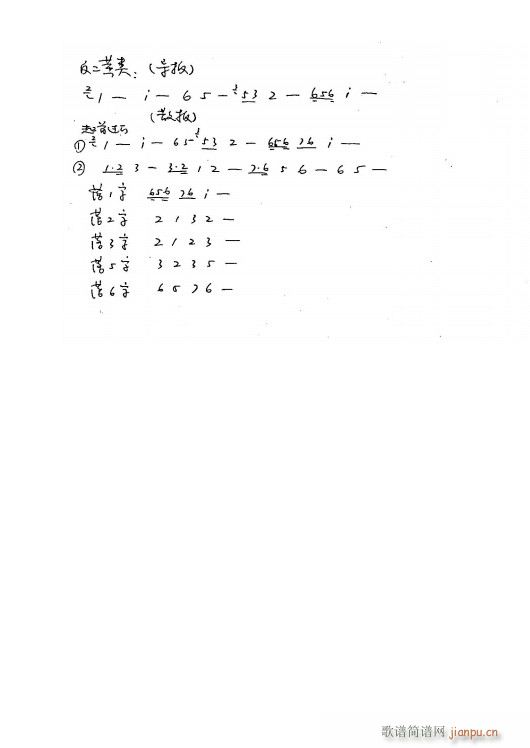 反二黄类：(导板)
2 1 — i — 6 5 — 53 2 — 656 i —
(散板)
过门
① 2 1 — i — 65 — 53 2 — 656 76 i —
② 1·2 3 — 3·2 1 2 — 7·6 5 6 — 6 5 —
落1字 656 76 i —
落2字 2 1 3 2 —
落3字 2 1 2 3 —
落5字 3 2 3 5 —
落6字 6 5 7 6 —
歌谱简谱网 jianpu.cn